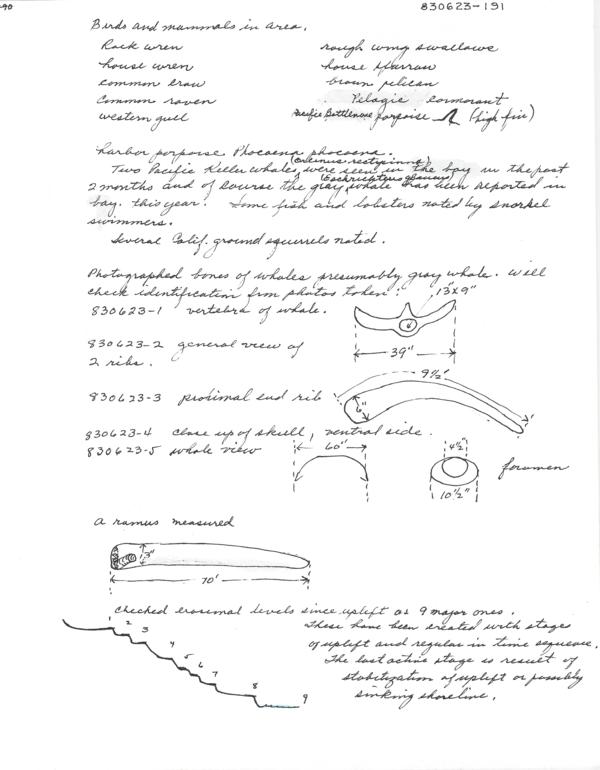 -90
830623-191
Birds and mammals in area.
Rock wren
rough wing swallows
house wren
house sparrow
common crow
brown pelican
Common raven
Pelagic cormorant
western gull
Pacific Bottlenose porpoise (high fin)
harbor porpoise Phocoena phocoena.
(Orcinus rectipinna)
Two Pacific Killer whales were seen in the bay in the past
(Eschrichtius glaucus)
2 months and of course the gray whale has been reported in
bay this year. Some fish and lobsters noted by snorkel
swimmers.
Several Calif. ground squirrels noted.
Photographed bones of whales presumably gray whale. Will
check identification from photos taken.
13"x9"
830623-1 vertebra of whale.
39"
830623-2 general view of
2 ribs.
9½'
830623-3 proximal end rib
6"
830623-4 close up of skull, ventral side.
830623-5 whole view
60"
4½"
foramen
10½"
A ramus measured
3"
70'
Checked erosional levels since uplift as 9 major ones.
These have been created with stages
of uplift and regular in time sequence.
The last active stage is result of
stabilization of uplift or possibly
sinking shoreline.
1 2 3 4 5 6 7 8 9